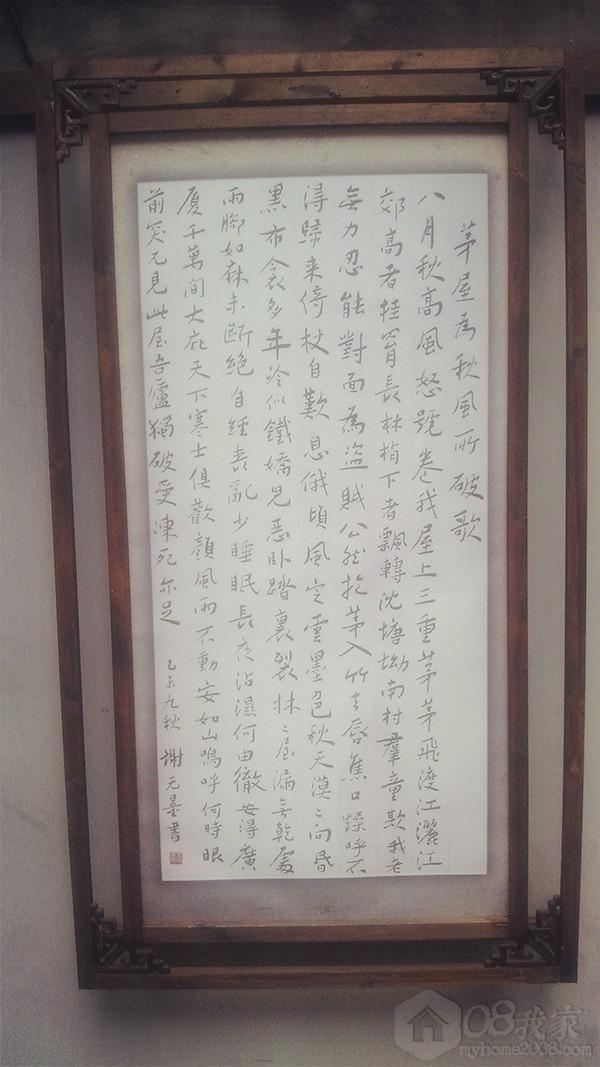 茅屋為秋風所破歌
八月秋高風怒號卷我屋上三重茅茅飛渡江灑江
郊高者挂罥長林梢下者飄轉沈塘坳南村羣童欺我老
無力忍能對面為盜賊公然抱茅入竹去唇焦口燥呼不
得歸来倚杖自歎息俄頃風定雲墨色秋天漠〻向昏
黑布衾多年冷似鐵嬌兒惡卧踏裏裂牀〻屋漏無乾處
雨脚如麻未斷絕自經喪亂少睡眠長夜沾濕何由徹安得廣
厦千萬間大庇天下寒士俱歡顏風雨不動安如山嗚呼何時眼
前突兀見此屋吾廬獨破受凍死亦足
乙未九秋 謝无量書
08我家
myhome2008.com